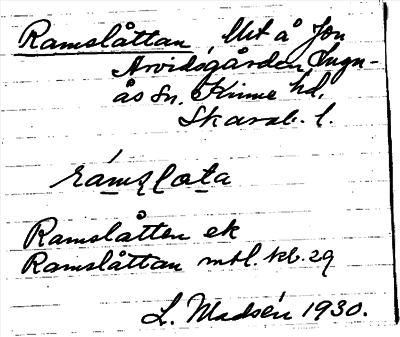 Ramslåttan, Utt å Jon
Arvidsgården, Lugn-
ås sn. Kinne hd,
Skarab. l.
ramslɷta
Ramslåtten ek
Ramslåttan mtl. kb. 29
L. Madsén 1930.